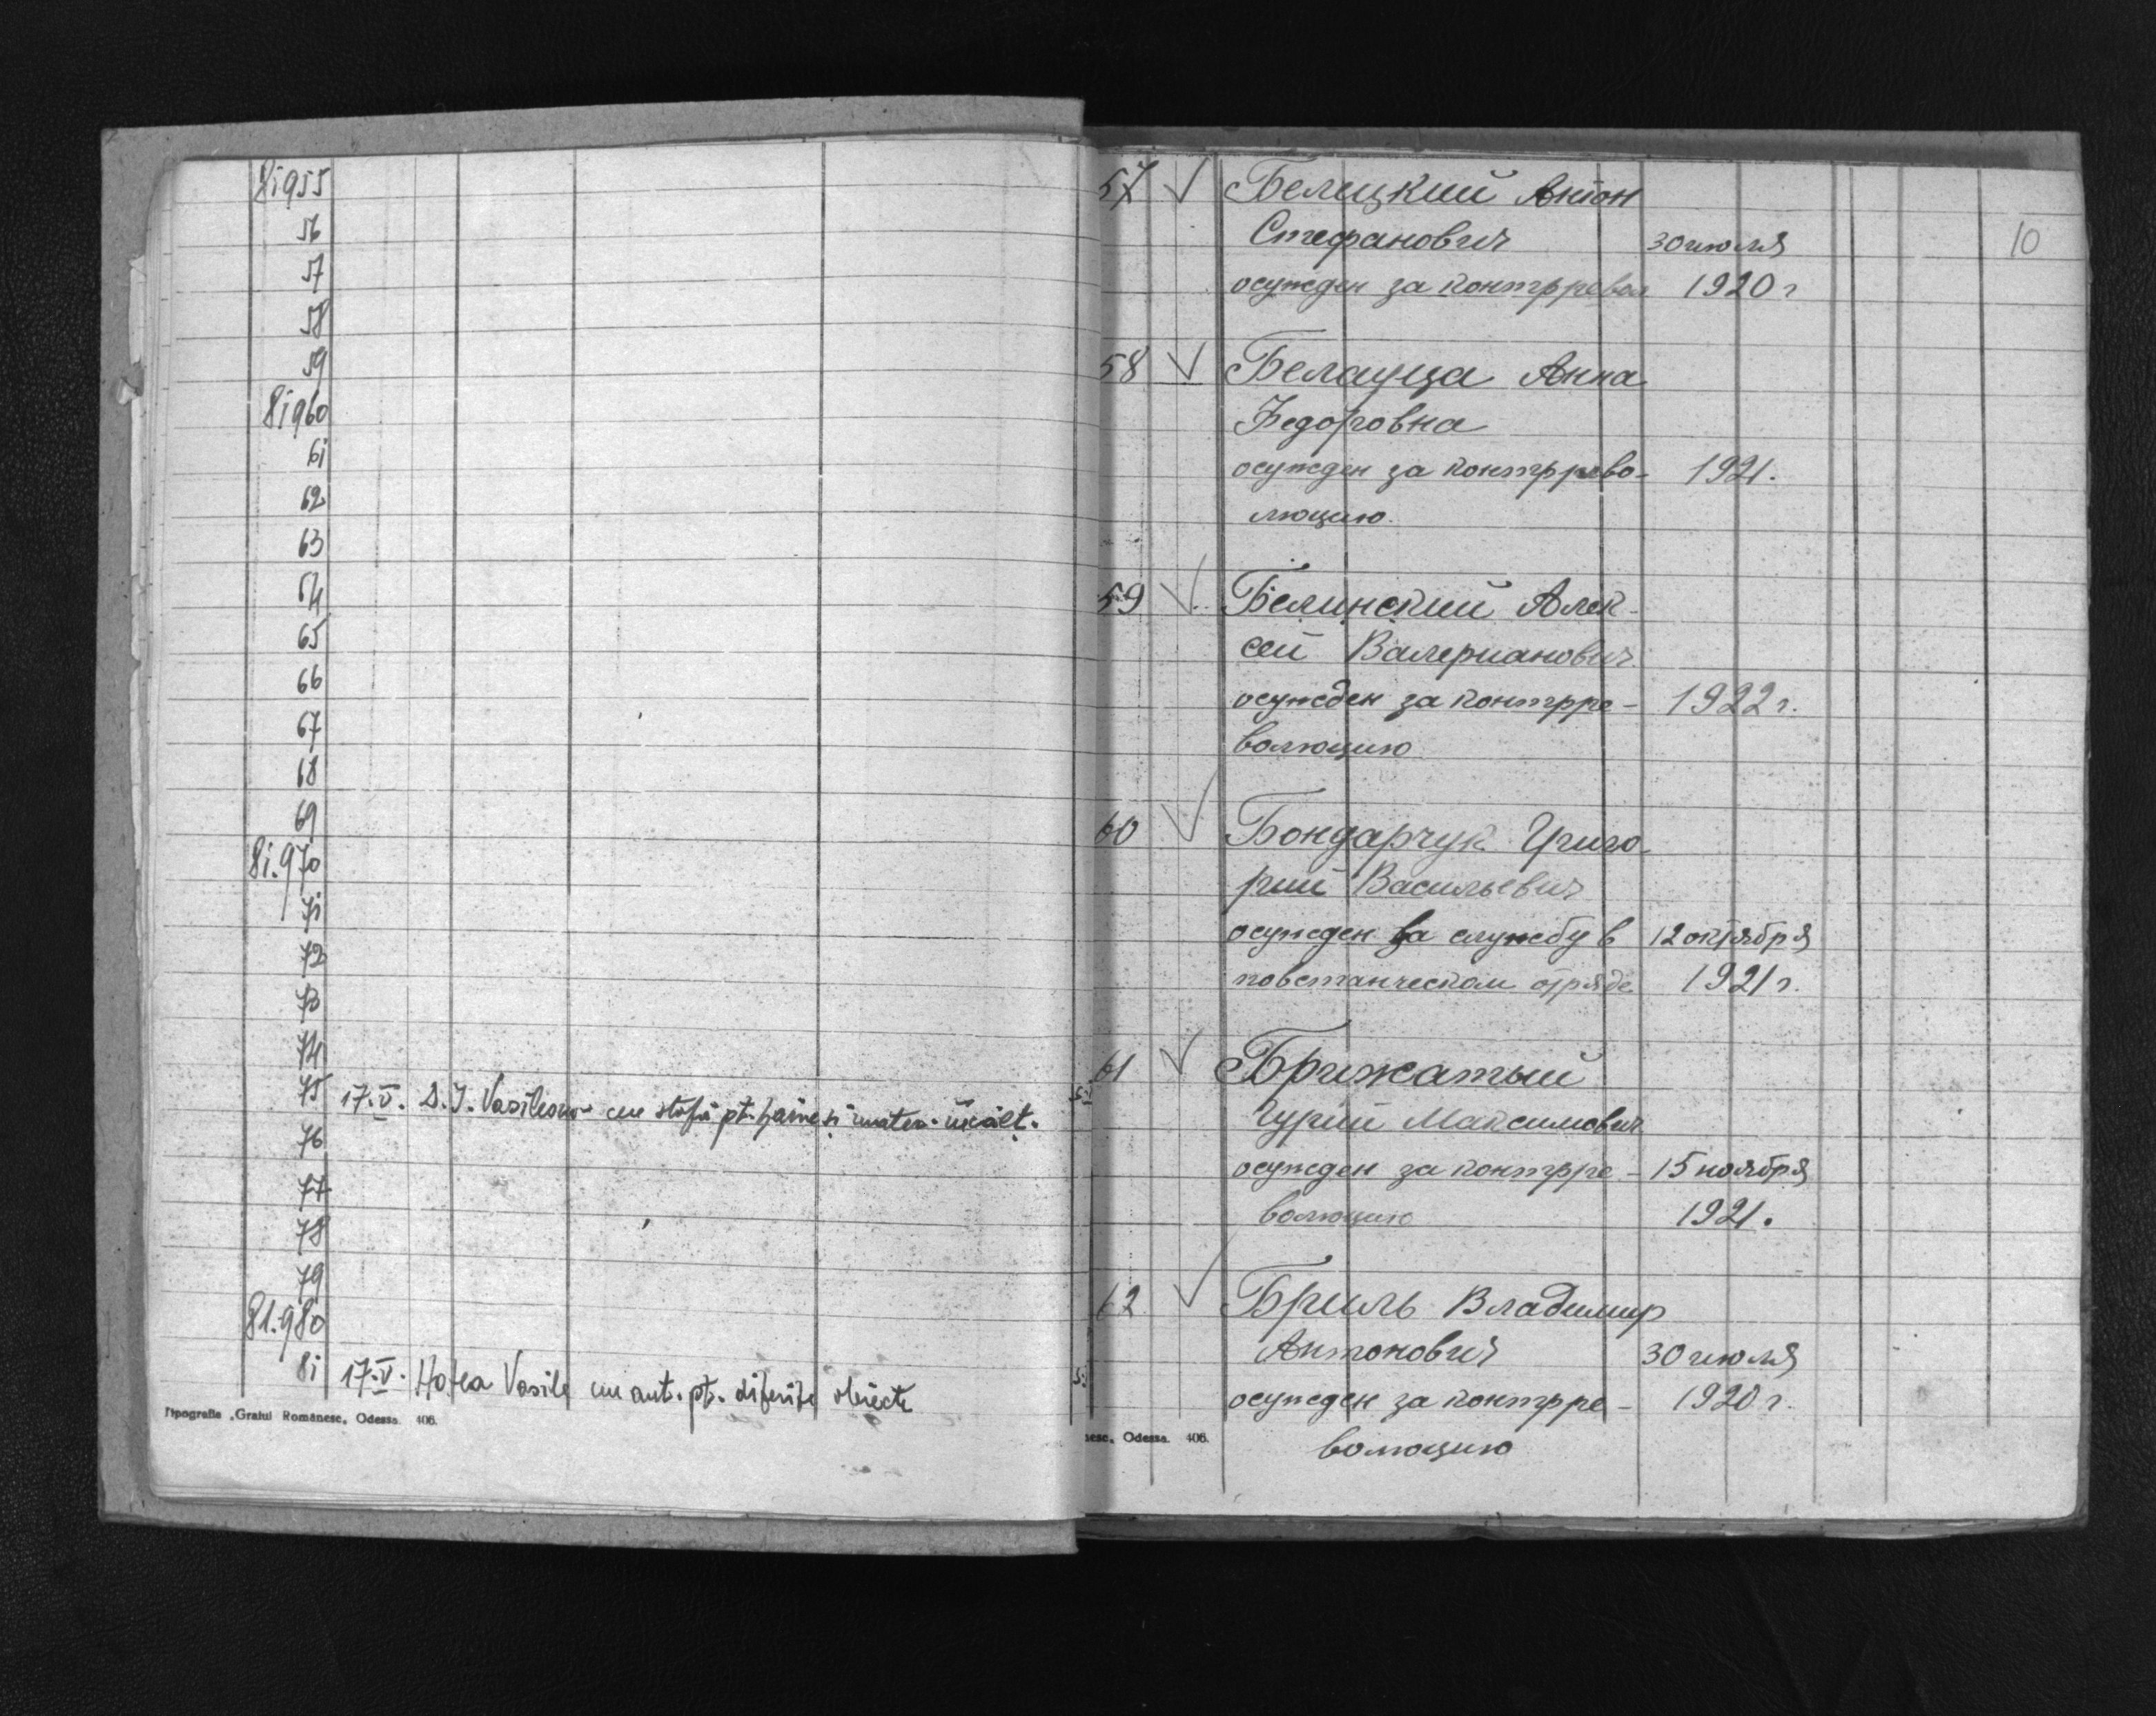 81955
56
57
58
59
81960
61
62
63
64
65
66
67
68
69
81.970
71
72
73
74
75 17.V. D.I. Vasileanu cu stofă pt. haine și mater. încălț.
76
77
78
79
81.980
81 17.V. Hotea Vasile cu aut. pt. diferite obiecte
Tipografia „Graiul Românesc„ Odessa. 406.
10
57 √ Белицкий Антон
Стефанович 30 июля
осужден за контрревол 1920 г
58 √ Белауца Анна
Федоровна
осужден за контррево- 1921.
люцию.
59 √ Белинский Алек-
сей Валерианович
осужден за контрре- 1922 г.
волюцию
60 √ Бондарчук Григо
рий Васильевич
осужден за службу в 12 октября
повстанческом отряде 1921 г.
61 √ Брижатый
Гурий Максимович
осужден за контрре- 15 ноября
волюцию 1921.
62 √ Бриль Владимир
Антонович 30 июля
осужден за контрре- 1920 г.
волюцию
nesc„ Odessa. 406.